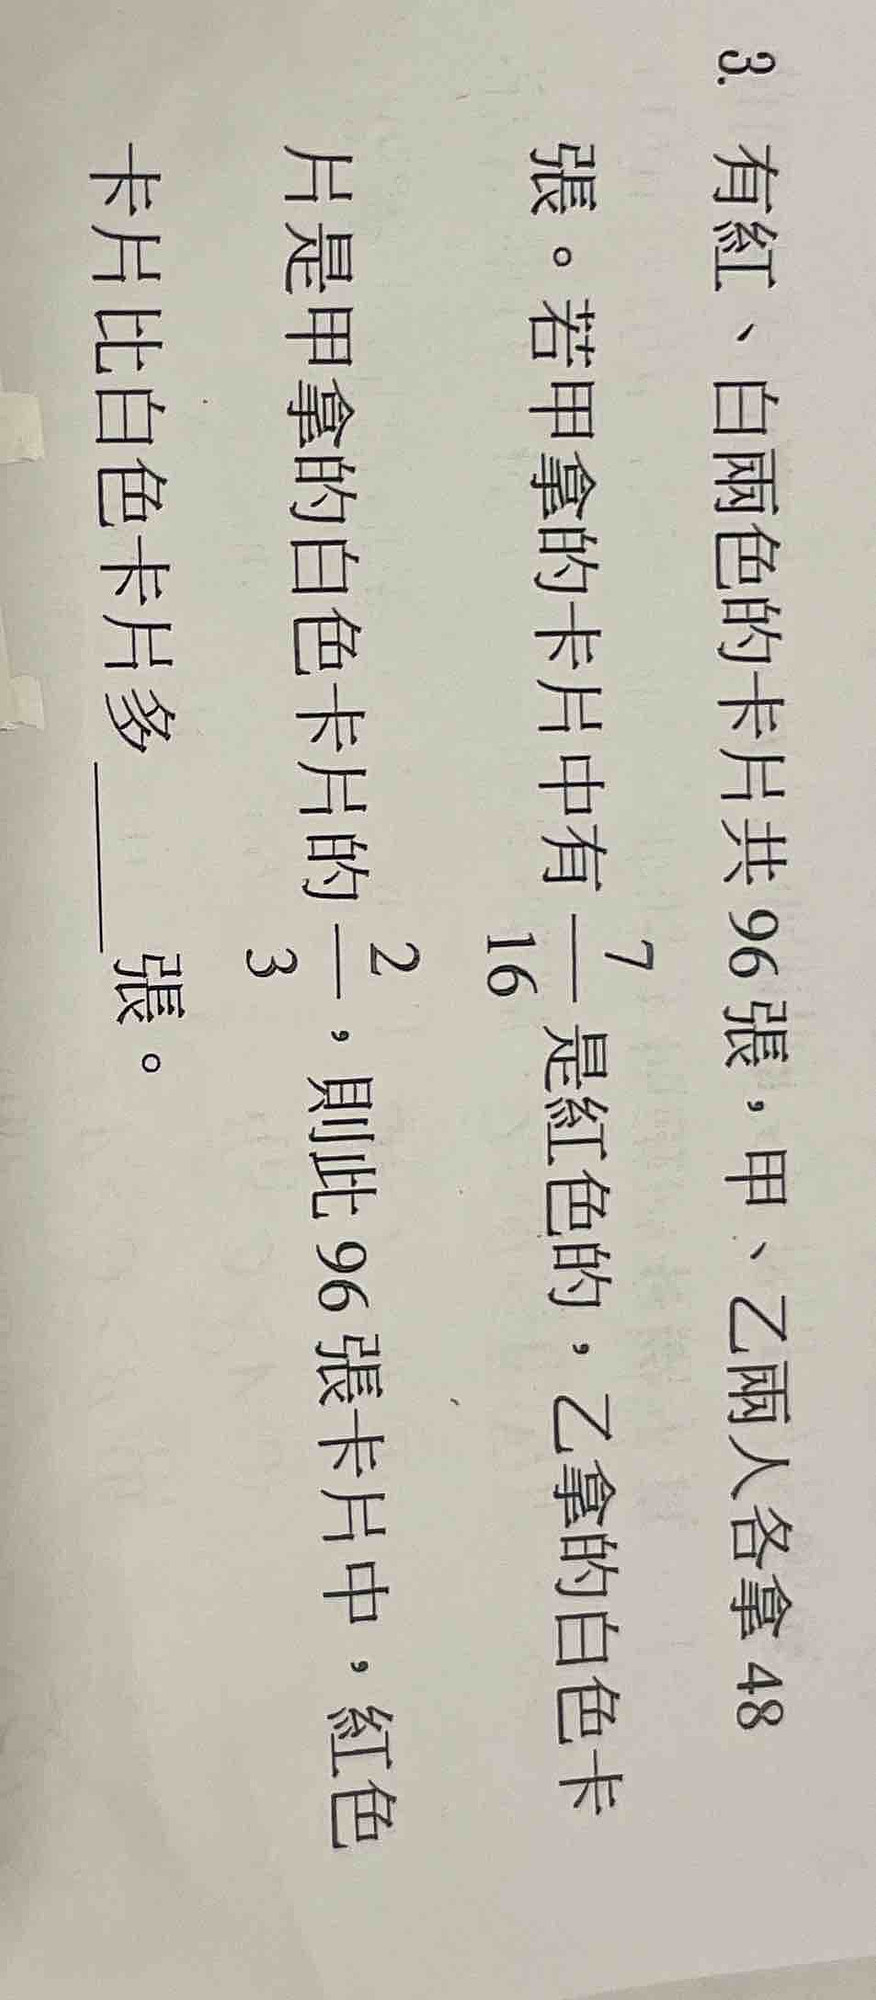 3. 有紅、白兩色的卡片共 96 張，甲、乙兩人各拿 48
張。若甲拿的卡片中有 7/16 是紅色的，乙拿的白色卡
片是甲拿的白色卡片的 2/3，則此 96 張卡片中，紅色
卡片比白色卡片多______張。